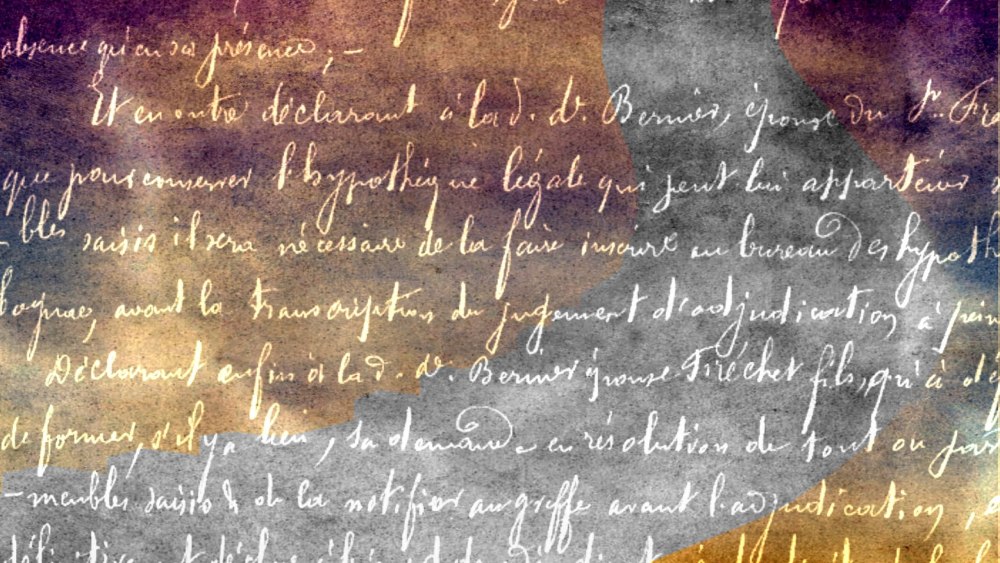 absence qu'en sa présence ; —
Et en outre déclarant à la d. de. Bernier, épouse du Sr. Fré
que pour conserver l'hypothèque légale qui peut lui appartenir
- bles saisis il sera nécessaire de la faire inscrire au bureau des hypoth
avant la transcription du jugement d'adjudication à pein
Déclarant enfin à la d. de. Bernier épouse Fréchet fils, qu'à
de former, s'il y a lieu, sa demande en résolution de tout ou par
- meubles saisis & de la notifier au greffe avant l'adjudication,